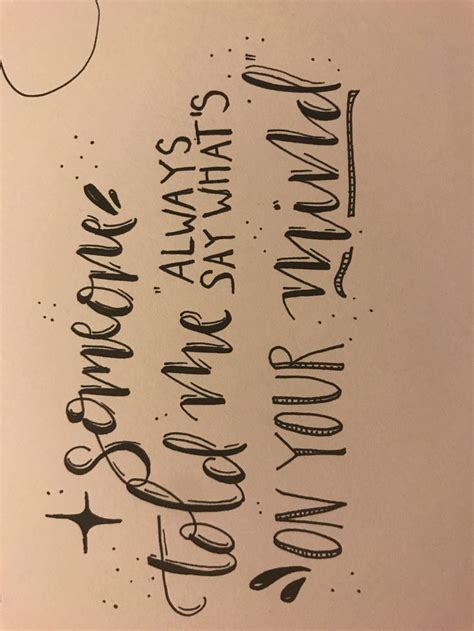 Someone
told me "ALWAYS
SAY WHAT'S
ON YOUR mind"